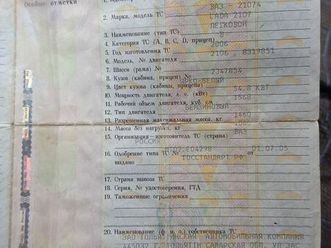 Особые отметки
ВАЗ - 21074
2. Марка, модель ТС
LADA 2107
3. Наименование (тип ТС)
ЛЕГКОВОЙ
4. Категория ТС (А, В, С, D, прицеп)
5. Год изготовления ТС
2006
6. Модель, № двигателя
2106, 8319851
7. Шасси (рама) №
8. Кузов (кабина, прицеп) №
2347854
9. Цвет кузова (кабины, прицепа)
10. Мощность двигателя, л. с. (кВт)
54.8 КВТ
11. Рабочий объем двигателя, куб. см
1568
12. Тип двигателя
БЕНЗИНОВЫЙ
13. Разрешенная максимальная масса, кг
1460
14. Масса без нагрузки, кг
15. Организация - изготовитель ТС (страна)
ВАЗ
РОССИЯ
16. Одобрение типа ТС №
01.07.05
выдано
ГОССТАНДАРТ РФ
17. Страна вывоза ТС
18. Серия, № удостоверения, ГТД
19. Таможенные ограничения
20. Наименование (ф. и. о.) собственника ТС
АВТОМОБИЛЬНАЯ КОМПАНИЯ